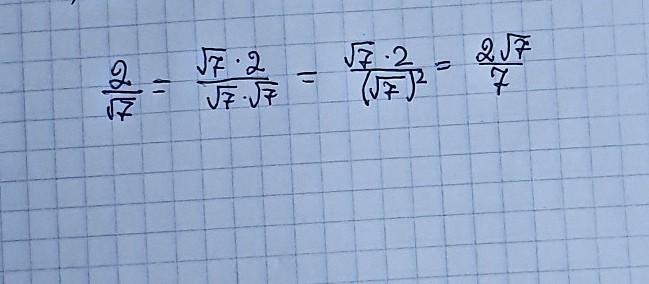 2/√7 = (√7 · 2)/(√7 · √7) = (√7 · 2)/(√7)² = 2√7/7